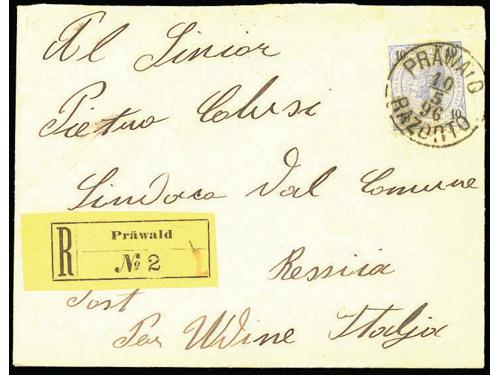 Al Sinior
Pietro Colusi
Sindaco Dal Comune
Ressiia
Post
Per Udine Italja
PRÄWALD
10
5
96
RAZDRTO
10
10
R
Präwald
№ 2